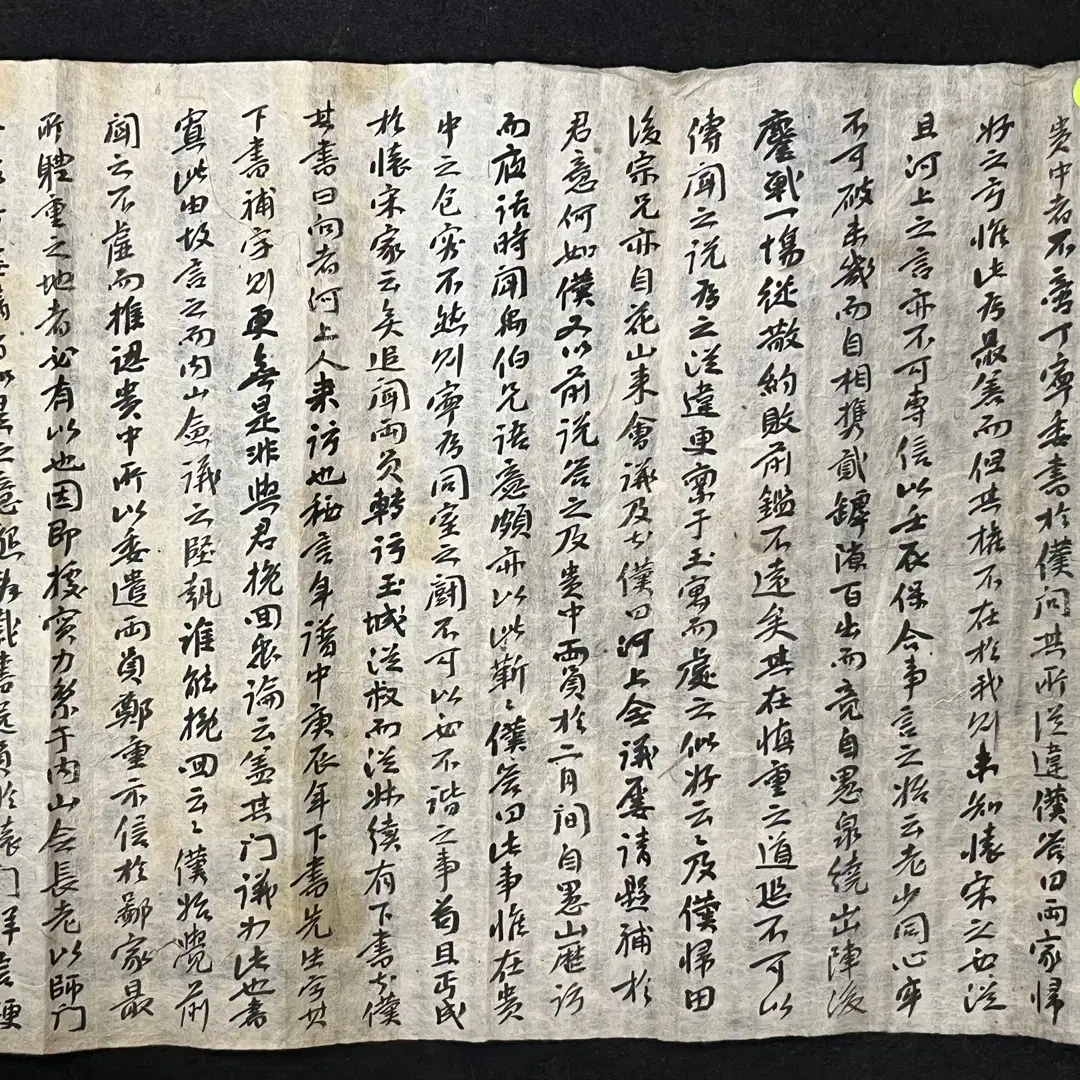 貴中者不啻丁寧委書於僕問其所從違僕答曰兩家歸
好之方惟此爲最善而但其權不在於我則未知懷宋之必從
且河上之言亦不可專信以壬辰保合事言之始云老少同心牢
不可破未幾而自相携貳罅隙百出而竟自愚泉繞出陣後
鏖戰一場從散約敗前鑑不遠矣其在愼重之道恐不可以
傳聞之說爲之從違更稟于玉寓而處之似好云云及僕歸田
後宗兄亦自花山來會議及於僕曰河上合議屢請縣補於
君意何如僕又以前說答之及貴中兩員於二月間自愚山歷訪
而夜話時聞禹伯兄語意頗亦以此蘄蘄僕答曰此事惟在貴
中之包容不然則寧爲同室之鬪不可以必不諧之事苟且丐成
於懷宋家云矣追聞兩員轉訪玉城從叔而從叔續有下書於僕
其書曰向者河上人來訪也秘言年譜中庚辰年下書先生字其
下書補字則更無是非與君挽回衆論云盖其門議如此也書
實此由故言之而內山僉議云堅執誰能挽回云云僕始覺前
聞云不虛而推認貴中所以委遣兩員鄭重示信於鄙家最
所體重之地者必有以也因卽據實力禀于內山僉長老以師門